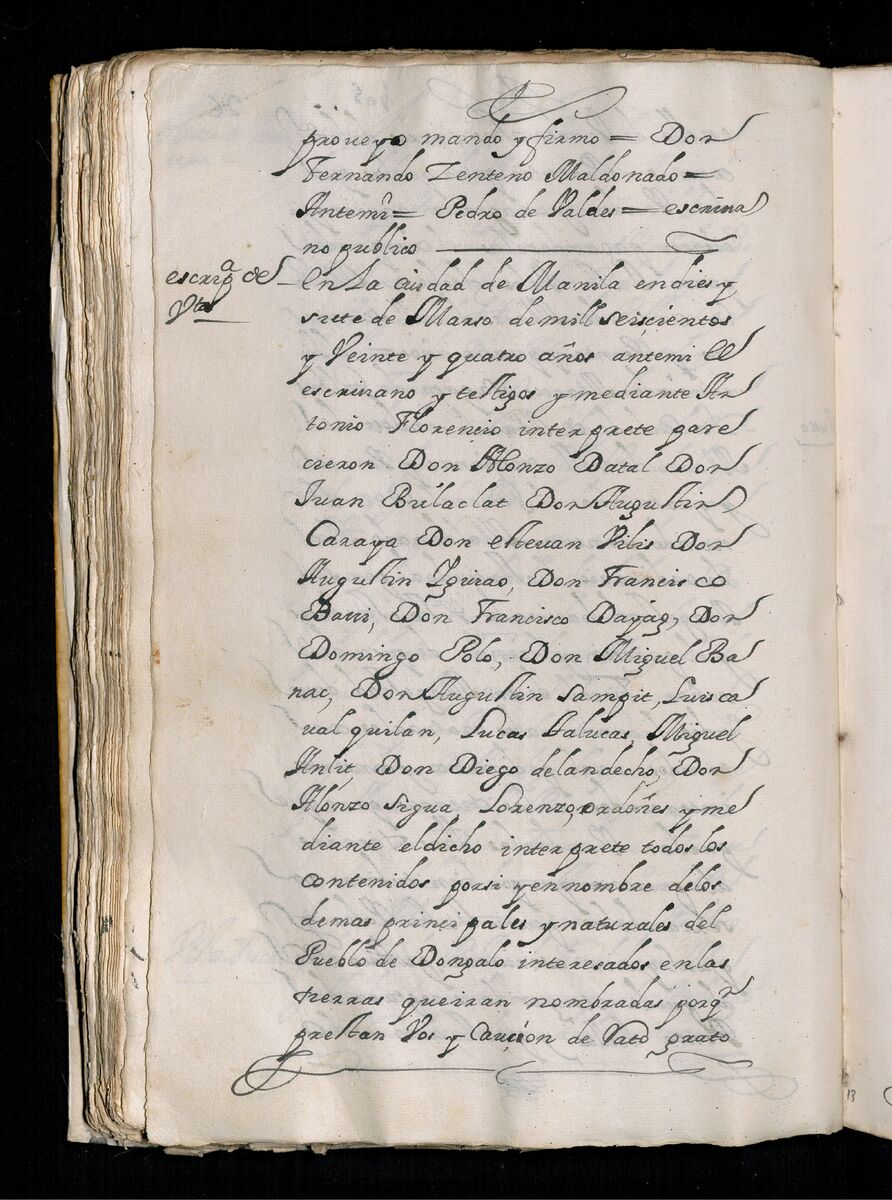 proveyo mando y firmo = Don
Fernando Zenteno Maldonado =
Antemi = Pedro de Valdes = escriva
no publico
escripᵃ de
Vta
en La Ciudad de Manila en dies y
siete de Marso de mill seiscientos
y Veinte y quatro años antemi el
escrivano y testigos y mediante An
tonio Florencio interprete pare
cieron Don Alonzo Datal Don
Juan Bulaclat Don Augustin
Caraya Don estevan Pilis Don
Augustin Don Francisco
Bavi, Don Francisco Dayag, Don
Domingo Polo, Don Miguel Ba
nac, Don Augustin Sampit, Luis ca
val quilan, Lucas Lalucas, Miguel
Anlit, Don Diego delandecho, Don
Alonzo Sigua, Lorenzo, ordoñes y me
diante el dicho interprete todos los
contenidos por si y en nombre de los
demas principales y naturales del
Pueblo de Dongalo interesados en las
tierras que iran nombradas porqᵉ
prestan Vos y Caución de rato grato
13